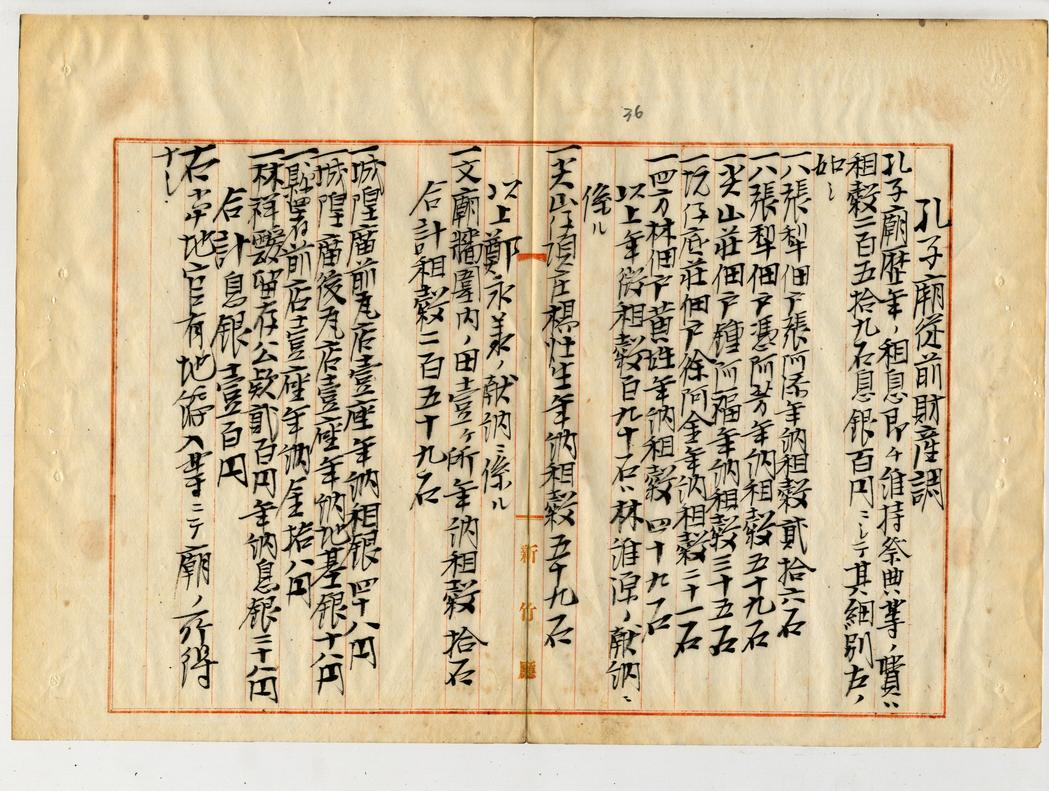 36
孔子廟從前財產調
孔子廟歷年ノ租息即チ維持祭典等ノ費ハ
租穀二百五拾九石息銀百円ニシテ其細別左ノ
如シ
一八張犁佃戶張阿添年納租穀貳拾六石
一八張犁佃戶馮阿芳年納租穀五十九石
一尖山莊佃戶鍾阿福年納租穀三十五石
一坑仔底莊佃戶徐阿金年納租穀二十一石
一四方林佃戶黃姓年納租穀四十九石
以上年徵租穀百九十石ハ林維源ノ獻納ニ
係ル
一尖山仔頂庄楊性生年納租穀五十九石
以上鄭永美ノ獻納ニ係ル
一文廟牆圍內ノ田壹ヶ所年納租穀拾石
合計租穀二百五十九石
一城隍廟前瓦店壹座年納租銀四十八円
一城隍廟後瓦店壹座年納地基銀十八円
一縣署前店壹座年納金拾八円
一林祥靉留存公款貳百円年納息銀三十八円
合計息銀壹百円
右ハ當地官有地編入等ニテ廟ノ所得
ナシ
新竹廳